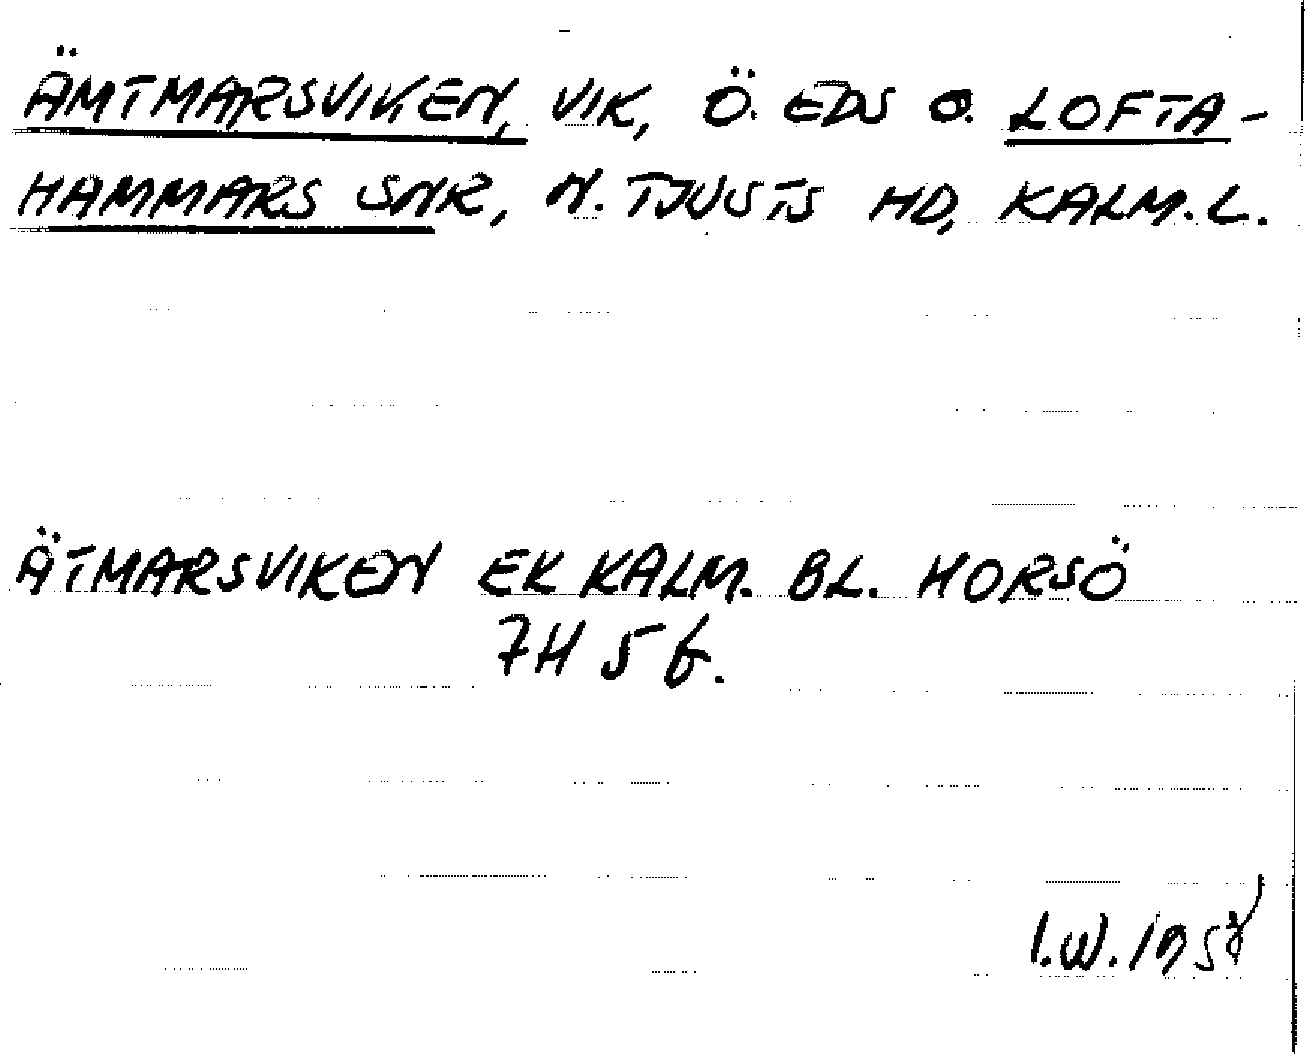 ÄMTMARSVIKEN, VIK, Ö. EDS O. LOFTA-
HAMMARS SNR, N. TJUSTS HD, KALM. L.
ÄTMARSVIKEN EK KALM. BL. HORSÖ
7H 5 f.
I.W.